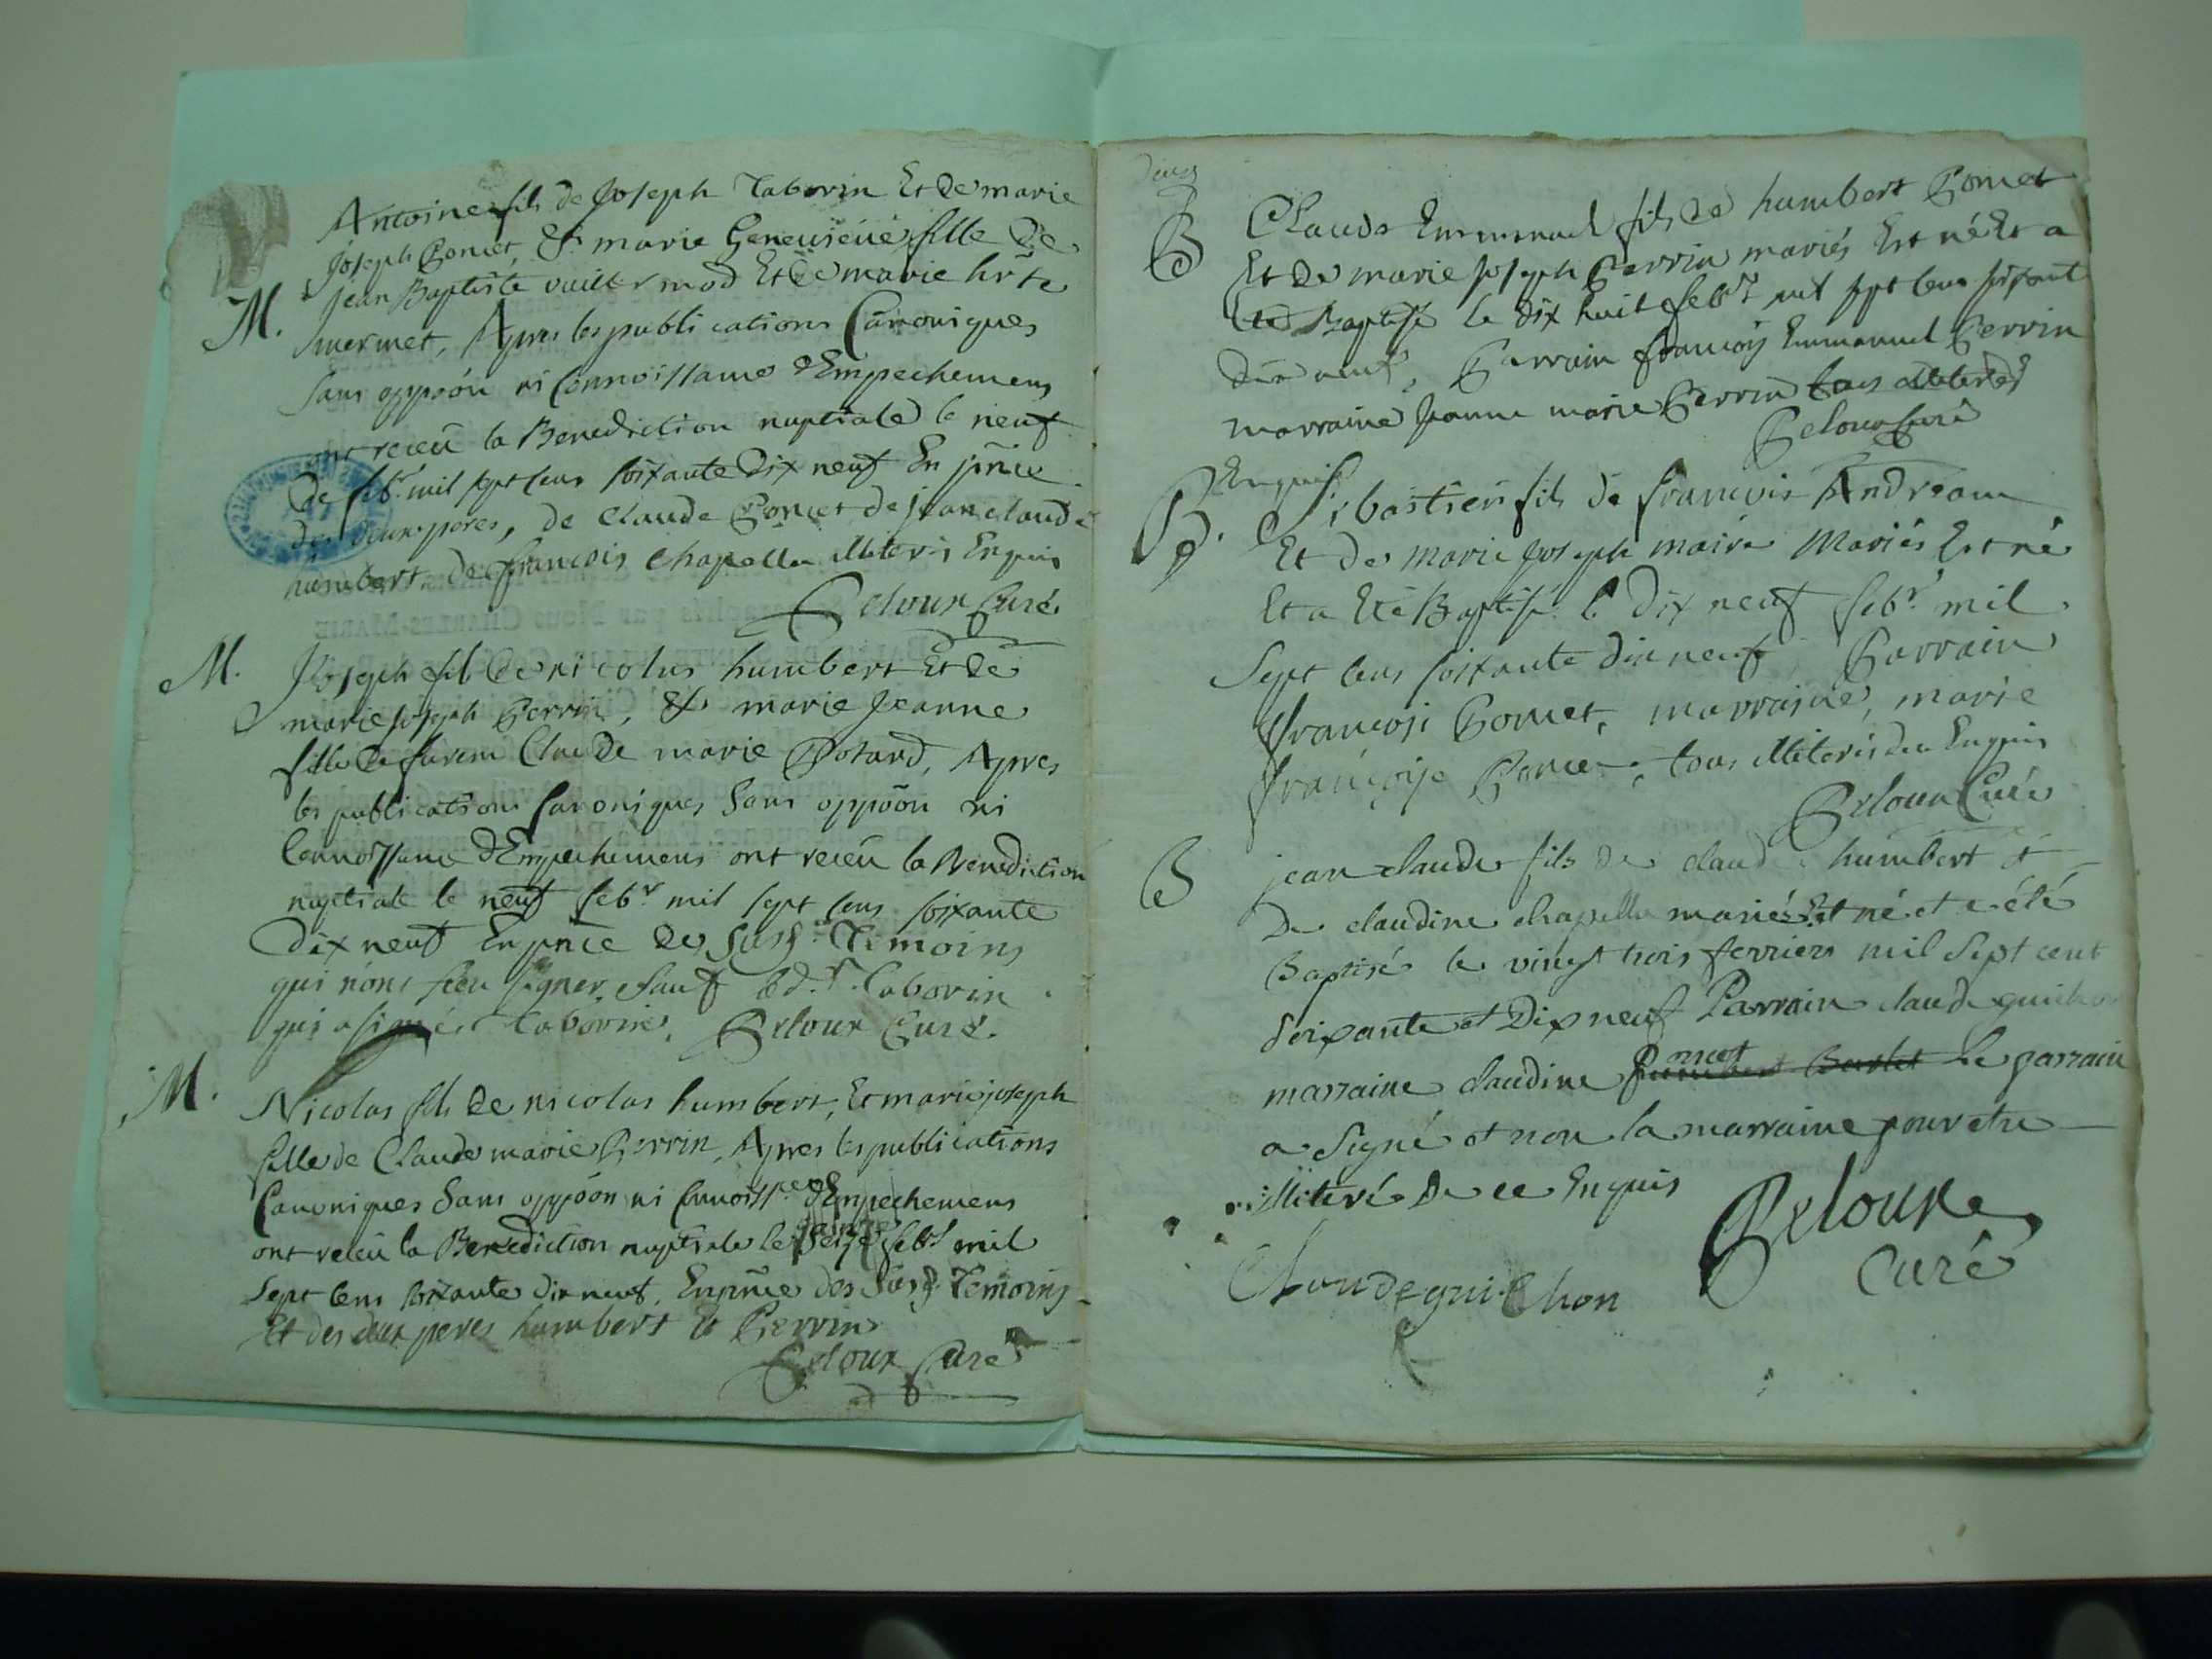 Antoine fils de Joseph Taborin Et de marie
Joseph Poncet, & marie Genevieve fille de
M. jean Baptiste vuillermod Et de marie
mermet, Apres les publications Canoniques
sans oppõon ni Connoissance d'Empechemens
ont receu la Benediction nuptiale le neuf
de febr. mil sept cens soixante dix neuf En pñce
des deux peres, de Claude Poncet de jean claude
humbert, de françois Chapella illiteris Enquis
Peloux Curé
M. Joseph fils de nicolas humbert Et de
marie joseph Perrin, & marie jeanne
fille de Claude marie Apres
les publications Canoniques Sans oppõon ni
Connoissance d'Empechemens ont receu la Benediction
nuptiale le neuf febr mil sept cens soixante
Dix neuf En pnce des susd. Temoins
qui n'ont sceu signer, sauf led. Taborin
qui a signé Taborin. Peloux Curé.
M. Nicolas fils de nicolas humbert, Et marie joseph
fille de Claude marie Perrin, Apres les publications
Canoniques Sans oppõon ni Connoiss.ce d'Empechemens
ont receu la Benediction nuptiale le seize febr mil
Sept cens soixante dix neuf, En pnce des susd. Temoins
Et des deux peres humbert & Perrin
Peloux Curé
B Claude Emmanuel fils de humbert Poncet
Et de marie joseph Perrin mariés Est né Et a
été Baptisé le dix huit febr mil sept cens soixant
dix neuf, Parrain françois Emmanuel Perrin
marraine jeanne marie Perrin tous illiterés
Peloux Curé
Enquis
B. Sebastien fils de françois Andreau
Et de marie joseph maire Mariés Est né
Et a Eté Baptisé le dix neuf febr. mil
Sept cens soixante dix neuf, Parrain
françois Poncet, marraine, marie
françoise Poncet, tous illiterés de ce Enquis
Peloux Curé
B jean claude fils de claude humbert et
De claudine chapella mariés Est né et a été
Baptisé le vingt trois ferrier mil Sept cent
Soixante et Dix neuf Parrain claude guichon
marraine claudine le parrain
a Signé et non la marraine pour etre
illiteré De ce Enquis
Peloux
Curé
Claude guichon